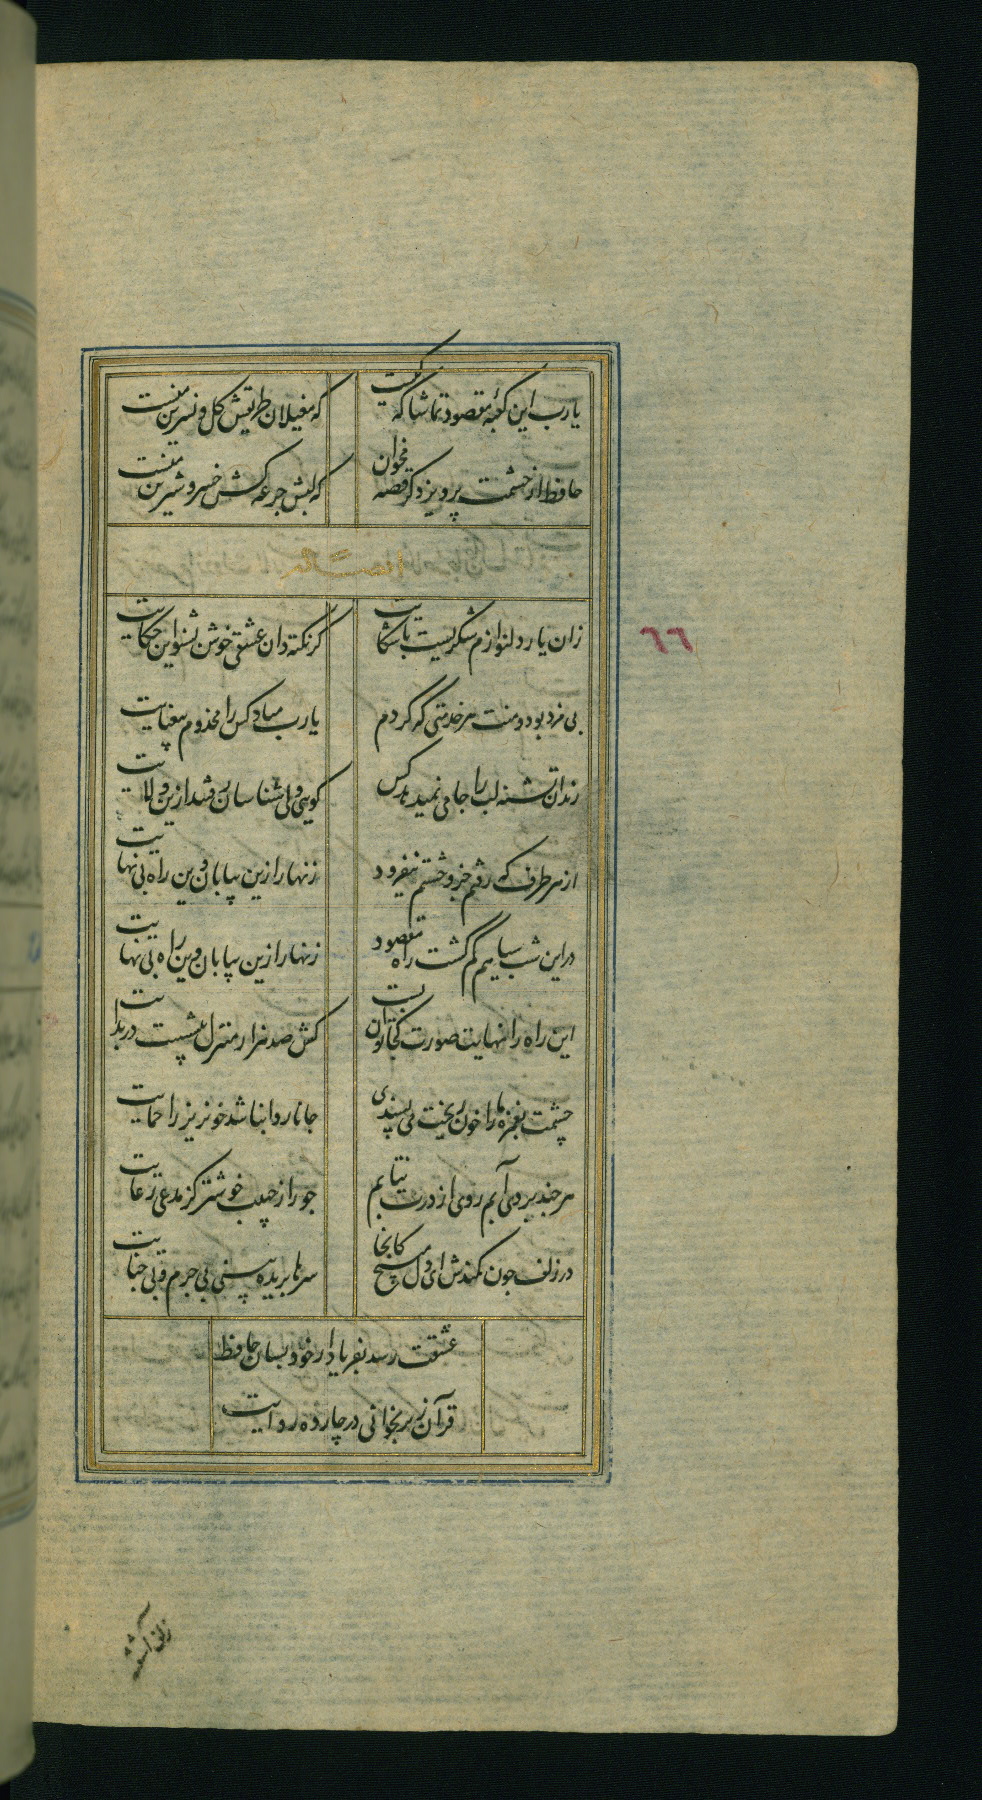 یارب این کعبه مقصود تماشاگه کیست
که مغیلان طریقش گل و نسرین منست
حافظ از حشمت پرویز دگر قصه مخوان
که لبش جرعه کش خسرو شیرین منست
زان یار دلنوازم شکریست با شکایت
گر نکته دان عشقی خوش بشنو این حکایت
بی مزد بود و منت هر خدمتی که کردم
یارب مباد کس را مخدوم بی عنایت
رندان تشنه لب را جامی نمیدهد کس
گویی ولی شناسان رفتند ازین ولایت
از هر طرف که رفتم جز وحشتم نیفزود
زنهار ازین بیابان وین راه بی نهایت
در این شب سیاهم گم گشت راه مقصود
زنهار ازین بیابان وین راه بی نهایت
این راه را نهایت صورت کجا توان بست
کش صد هزار منزل بیشست در بدایت
چشمت بغمزه ما را خون ریخت می پسندی
جانا روا نباشد خونریز را حمایت
هر چند بردی آبم روی از درت نتابم
جور از حبیب خوشتر کز مدعی رعایت
در زلف چون کمندش ای دل مپیچ کانجا
سرها بریده بینی بی جرم و بی جنایت
عشقت رسد بفریاد ار خود بسان حافظ
قرآن ز بر بخوانی در چارده روایت
٦٦
زلف آشفته